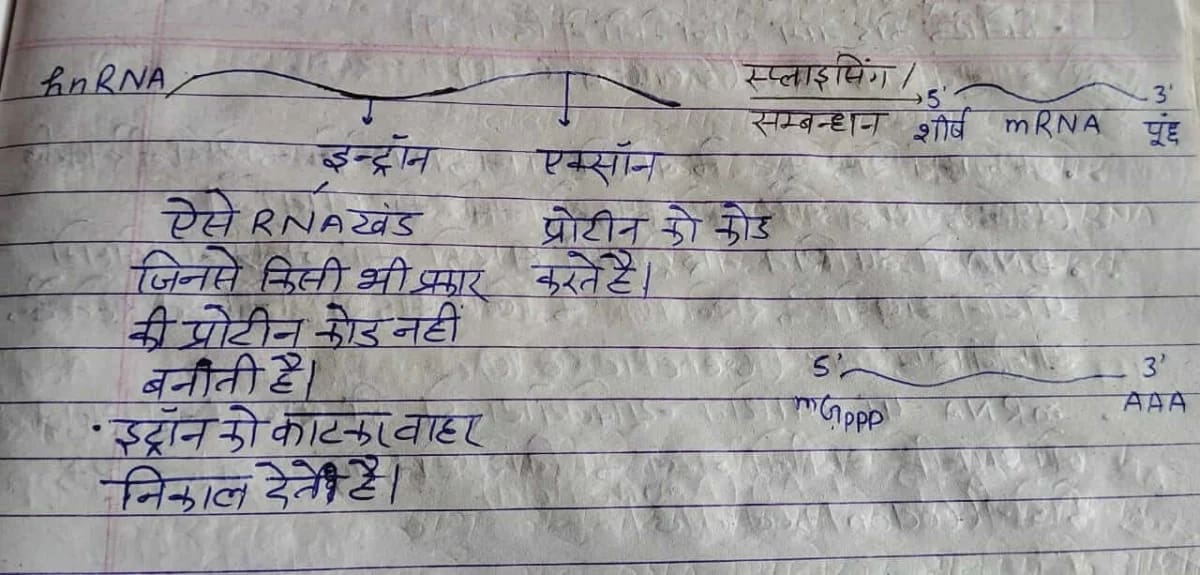 hnRNA
स्प्लाइसिंग /
सम्बन्धान
5' 3'
शीर्ष mRNA पूंछ
इन्ट्रॉन एक्सॉन
ऐसे RNA खंड प्रोटीन को कोड
जिनसे किसी भी प्रकार करते है।
की प्रोटीन कोड नहीं
बनाती है।
5' 3'
mGppp AAA
· इट्रॉन को काटकर वाहर
निकाल देते है।